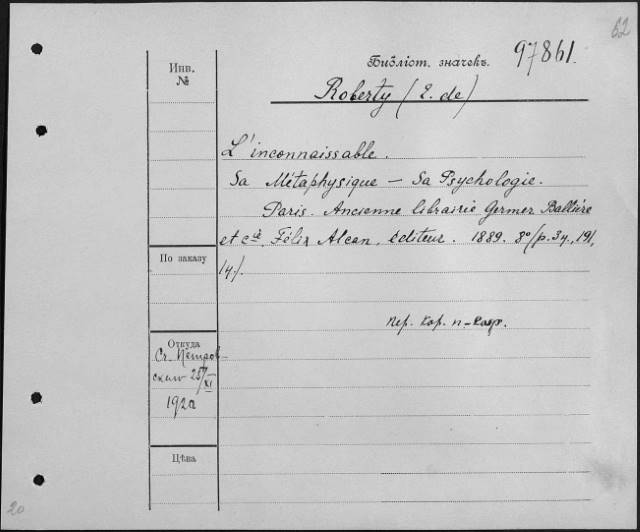 62
Библіот. значекъ. 97861.
Инв.
№
Roberty (E. de)
L'inconnaissable.
Sa Métaphysique — Sa Psychologie.
Paris. Ancienne librairie Germer Ballière
et cie, Félix Alcan, éditeur. 1889. 8º (p. 3н., 191,
1н.)
По заказу
Пер. кор.
Откуда
Ст. Петров-
ским 25/XI
192
Цѣна
20